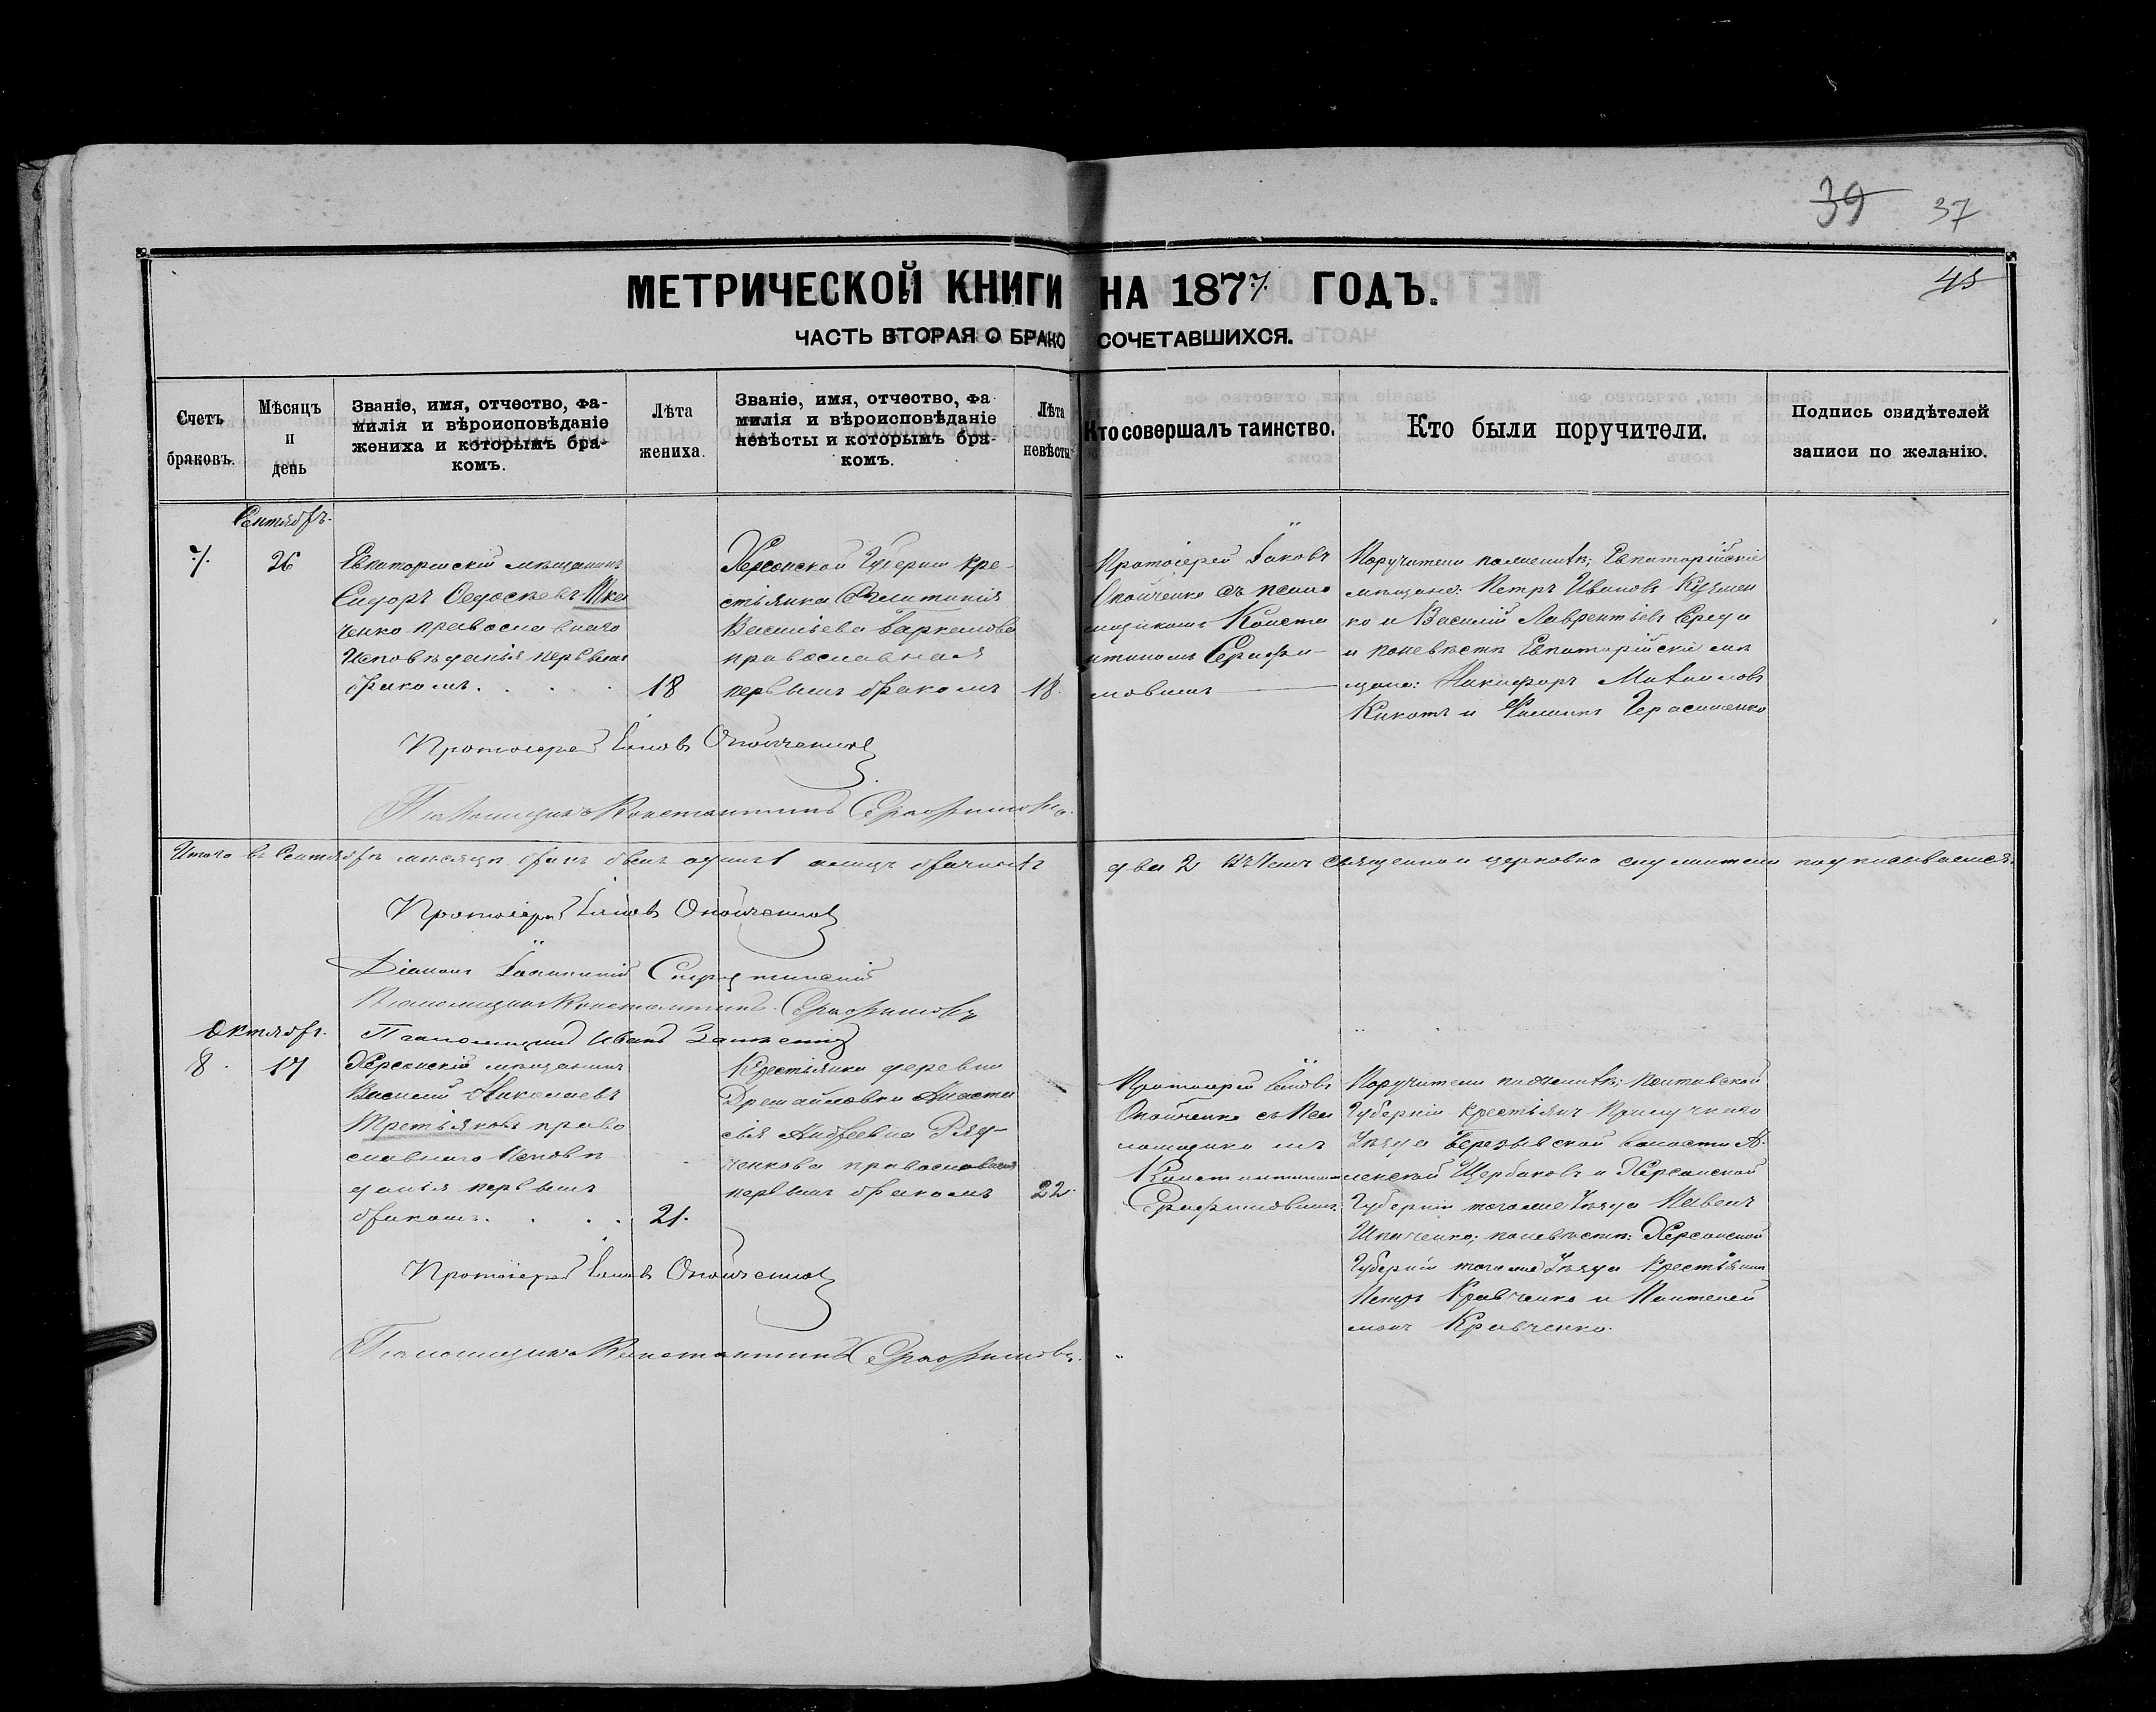 39 37
45
МЕТРИЧЕСКОЙ КНИГИ НА 1877 ГОДЪ.
ЧАСТЬ ВТОРАЯ О БРАКОСОЧЕТАВШИХСЯ.
Счетъ браковъ.
Мѣсяцъ и день
Званіе, имя, отчество, фа-
милія и вѣроисповѣданіе
жениха и которымъ бра-
комъ.
Лѣта жениха.
Званіе, имя, отчество, фа
милія и вѣроисповѣданіе
невѣсты и которымъ бра-
комъ.
Лѣта невѣсты
Кто совершалъ таинство.
Кто были поручители.
Подпись свидѣтелей
записи по желанію.
Сентябр.
7. 26
Евпаторійскій мѣщанинъ
Сидоръ
ченко православнаго
Исповѣданія первымъ
бракомъ. 18
Херсонской Губерніи кре-
стьянка
Васильева
православная
первымъ бракомъ 18.
Протоіерей Іаковъ
Опойченко съ псало
мщикомъ Конста
нтиномъ Серафи-
мовымъ
Поручители по женихѣ; Евпаторійскіе
мѣщане: Петръ Ивановъ Кузмен
ко и Василій Лаврентьевъ Среда
и по невѣстѣ Евпаторійскіе мѣ
щане: Никифоръ
Кикоть и Филипъ Герасименко
Протоіерей Іаковъ Опойченко
Псаломщикъ Константинъ Серафимовъ.
Итого въ Сентябрѣ мѣсяцѣ бракъ былъ одинъ 1 а лицъ брачныхъ два 2 въ чемъ священно и церковно служители подписываемся.
Протоіерей Іаковъ Опойченко
Діаконъ Іоанникій
Псаломщикъ Константинъ Серафимовъ
Псаломщикъ Иванъ
Октябр.
8. 17
Херсонскій мѣщанинъ
Василій Николаевъ
Третьяковъ право
славнаго Исповѣ
данія первымъ
бракомъ. 21.
Крестьянка деревни
Дремайловки Анаста
сія Андреевна
ченкова православная
первымъ бракомъ 22.
Протоіерей Іаковъ
Опойченко съ Пса
ломщикомъ
Константиномъ
Серафимовымъ.
Поручители по женихѣ; Полтавской
Губерніи крестьянъ Прилучкаго
Уѣзда волости А
лексѣй Щербаковъ и Херсонской
Губерніи того же Уѣзда Павелъ
по невѣстѣ: Херсонской
Губерніи того же Уѣзда Крестьянин
Петръ Кравченко и Пантелей
монъ Кравченко.
Протоіерей Іаковъ Опойченко
Псаломщикъ Константинъ Серафимовъ.